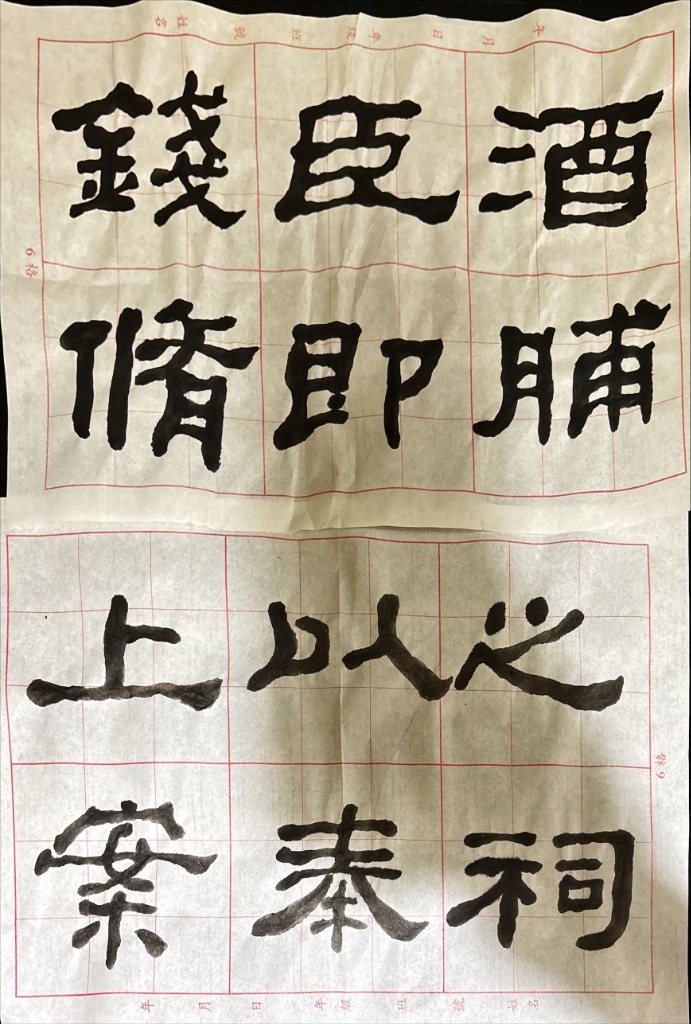 酒脯之祠
臣即以奉
錢脩上案
年 月 日 年級 班 號 姓名
6格
年 月 日 年級 班 號 姓名
6格